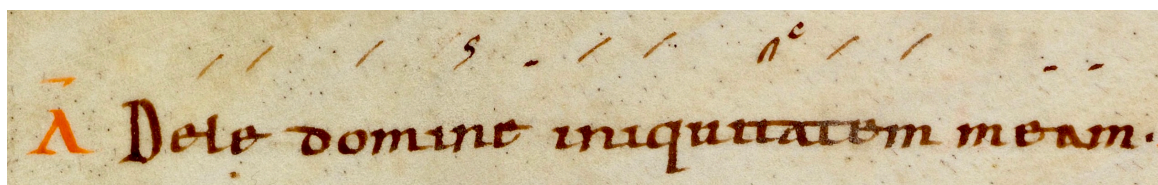 Ā Dele domine iniquitatem meam.